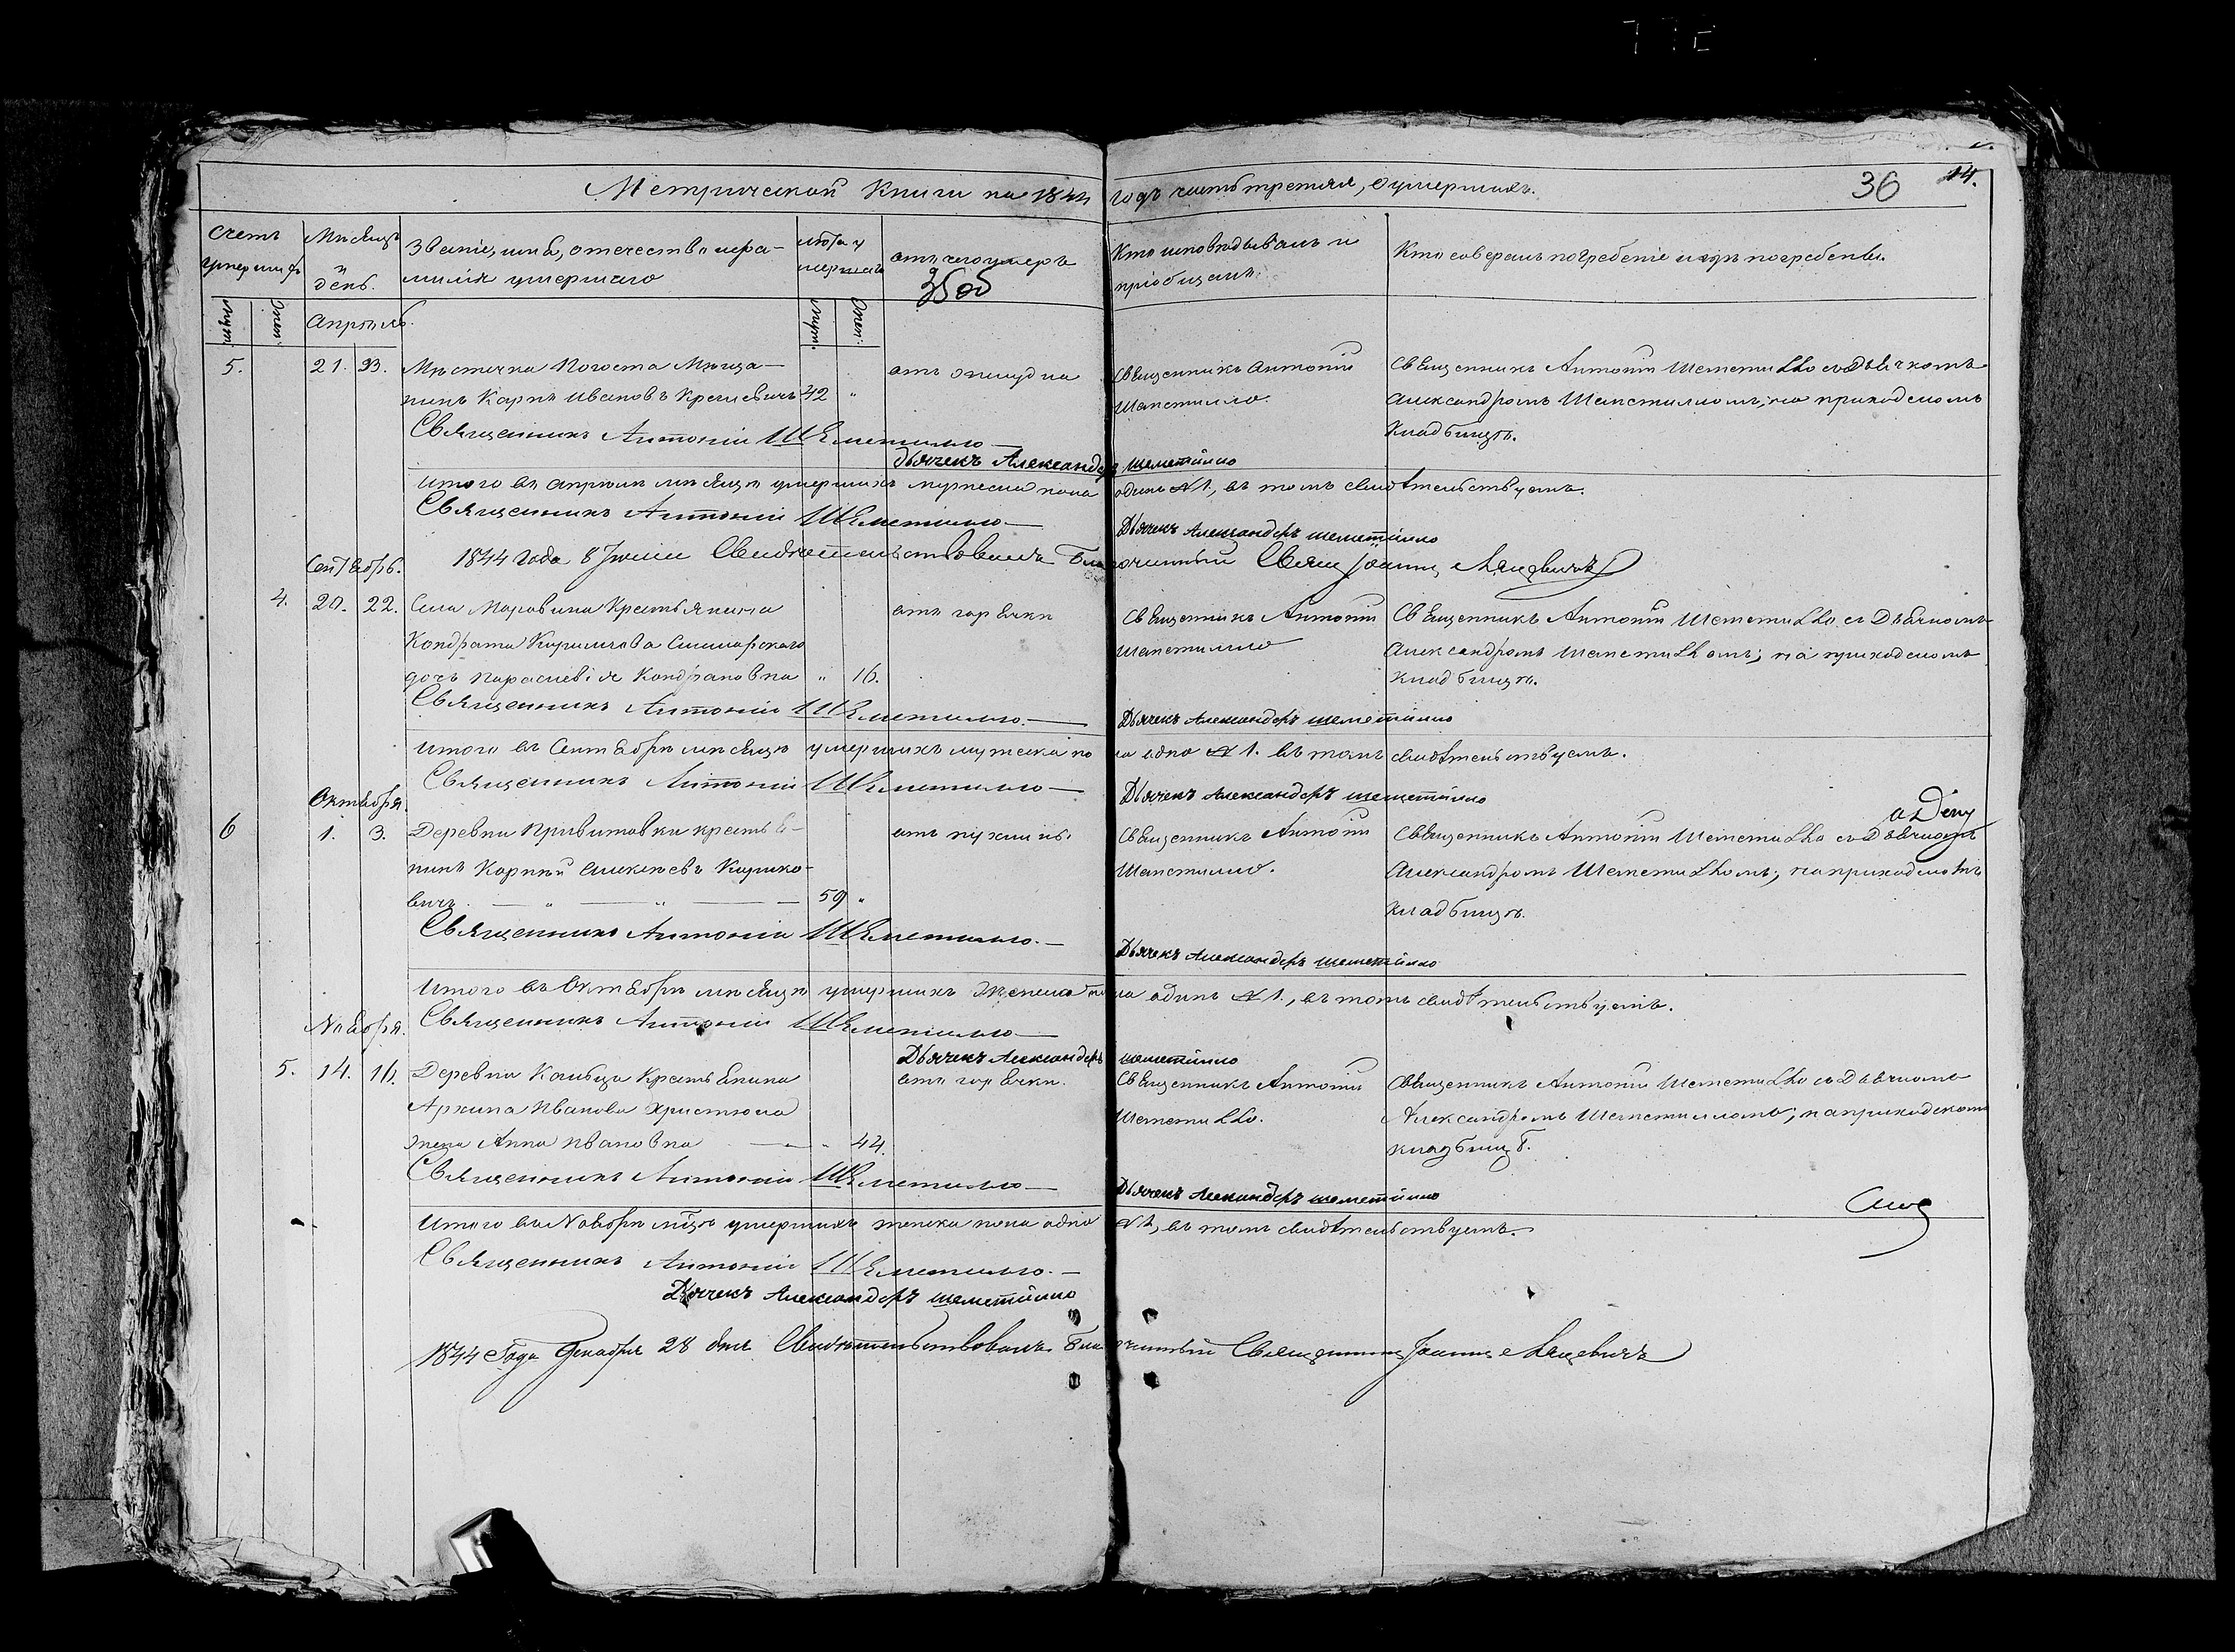 Метрической Книги на 1844 годъ часть третия, о умершихъ.
36 14.
Счетъ умершихъ
Мѣсяцъ и день.
Званіе, имя, отечество и фамилія умершаго
лѣта умершаго
отъ чего умеръ
Кто исповѣдывалъ и пріобщалъ.
Кто совершалъ погребеніе и гдѣ погребены.
Апрѣль.
5. 21. 23. Мѣстечка Погоста Мѣща-
нинъ Карпъ Ивановъ 42 "
Священникъ Антоній Шеметилло.
Священникъ Антоній Шеметилло съ Дьячкомъ
Александромъ Шеметилломъ; на приходскомъ
Кладбищѣ.
Священникъ Антоній Шеметилло
Дьячекъ Александеръ Шеметилло
Итого въ апрѣлѣ мѣсяцѣ умершихъ мужеска пола одинъ №1, въ томъ свидѣтельствуемъ.
Священникъ Антоній Шеметилло
Дьячекъ Александеръ Шеметилло
1844 Года 8 Свидѣтельствовалъ Благочинный Свящ Іоаннъ
Сентябрь.
4. 20. 22. Села Крестьянина
Кондрата Кирилова
дочь Параскевія Кондратовна " 16.
отъ горячки
Священникъ Антоній
Шеметилло
Священникъ Антоній Шеметилло съ Дьячкомъ
Александромъ Шеметилломъ; на приходскомъ
Кладбищѣ.
Священникъ Антоній Шеметилло
Дьячекъ Александеръ Шеметилло
Итого въ Сентябрѣ мѣсяцѣ умершихъ мужеска пола одно №1. въ томъ свидѣтельствуемъ.
Священникъ Антоній Шеметилло
Дьячекъ Александеръ Шеметилло
Октября.
6 1. 3. Деревни крестья-
нинъ Алексѣевъ Кирико-
вичъ 59 "
отъ пухлины.
Священникъ Антоній
Шеметилло.
Священникъ Антоній Шеметилло съ Дьячкомъ
Александромъ Шеметилломъ; на приходскомъ
Кладбищѣ.
Священникъ Антоній Шеметилло.
Дьячекъ Александеръ Шеметилло
Итого въ Октябрѣ мѣсяцѣ умершихъ женска пола одинъ №1, въ томъ свидѣтельствуемъ.
Священникъ Антоній Шеметилло
Дьячекъ Александеръ Шеметилло
Ноября.
5. 14. 16. Деревни Крестьянина
Архипа Иванова
жена Анна Ивановна " 44.
отъ горячки.
Священникъ Антоній
Шеметилло.
Священникъ Антоній Шеметилло съ Дьячкомъ
Александромъ Шеметилломъ; на приходскомъ
кладбищѣ.
Священникъ Антоній Шеметилло
Дьячекъ Александеръ Шеметилло
Итого въ Ноябрѣ мцѣ умершихъ женска пола одно №1, въ томъ свидѣтельствуемъ.
Священникъ Антоній Шеметилло.
Дьячекъ Александеръ Шеметилло
1844 Года Декабря 28 дня Свидѣтельствовалъ Благочинный Священникъ Іоаннъ